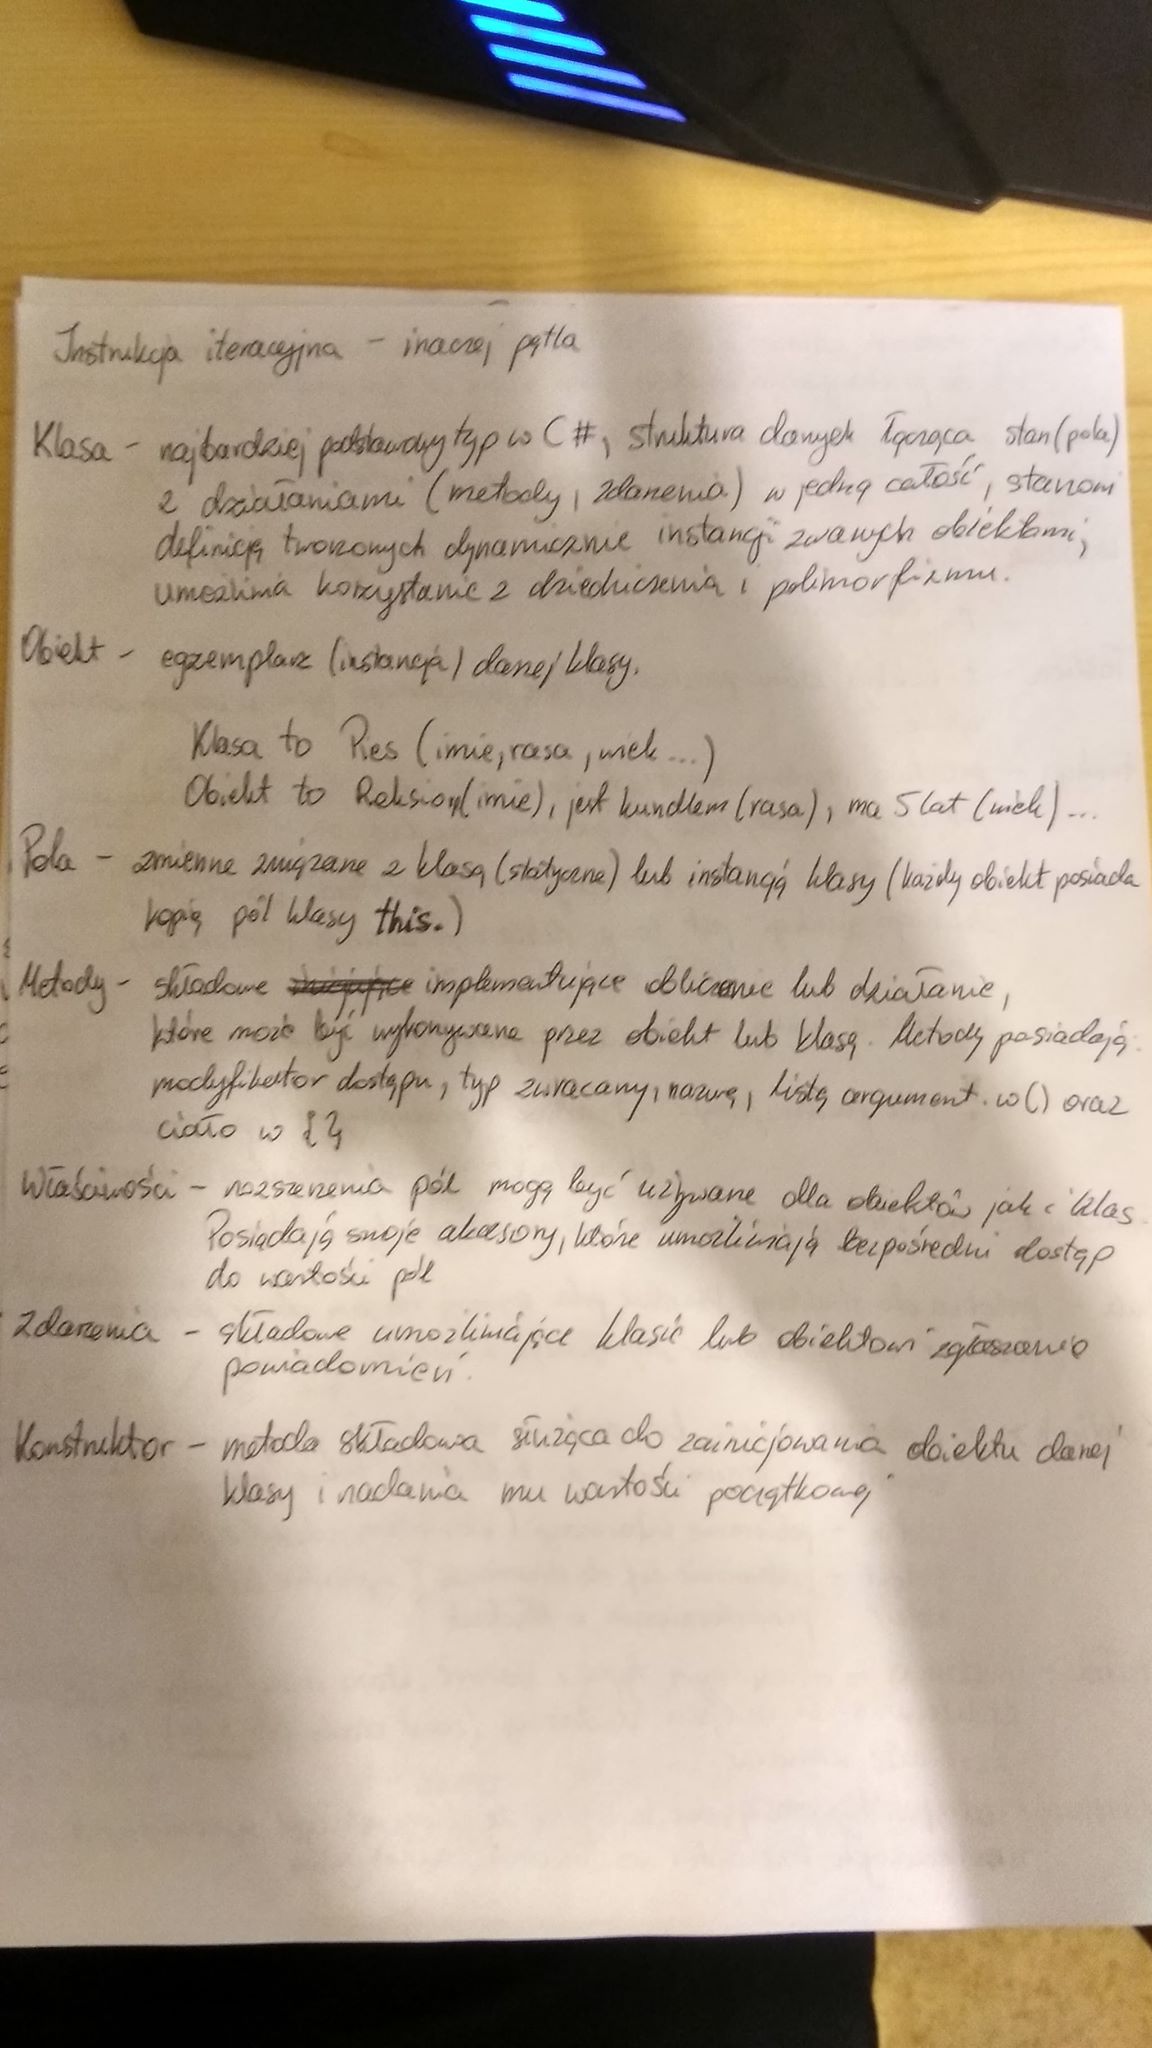 Instrukcja iteracyjna - inaczej pętla
Klasa - najbardziej podstawowy typ w C#, struktura danych łącząca stan (pola)
z działaniami (metody, zdarzenia) w jedną całość, stanowi
definicją tworzonych dynamicznie instancji zwanych obiektami,
umożliwia korzystanie z dziedziczenia i polimorfizmu.
Obiekt - egzemplarz (instancja) danej klasy.
Klasa to Pies (imie, rasa, wiek...)
Obiekt to Reksio (imie), jest kundlem (rasa), ma 5 lat (wiek)...
Pola - zmienne związane z klasą (statyczne) lub instancją klasy (każdy obiekt posiada
kopię pól klasy this.)
Metody - składowe implementujące obliczenie lub działanie,
które może być wykonywane przez obiekt lub klasę. Metody posiadają:
modyfikator dostępu, typ zwracany, nazwę, listę argument. w () oraz
ciało w {}
Właściwości - rozszerzenia pól mogą być używane dla obiektów jak i klas.
Posiadają swoje akcesory, które umożliwiają bezpośredni dostęp
do wartości pól
Zdarzenia - składowe umożliwiające klasie lub obiektowi zgłaszanie
powiadomień.
Konstruktor - metoda składowa służąca do zainicjowania obiektu danej
klasy i nadania mu wartości początkowej